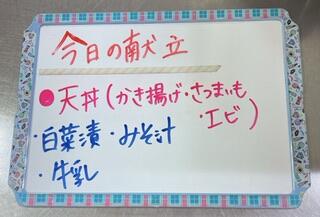 今日の献立
●天丼(かき揚げ・さつまいも
・エビ)
・白菜漬・みそ汁
・牛乳